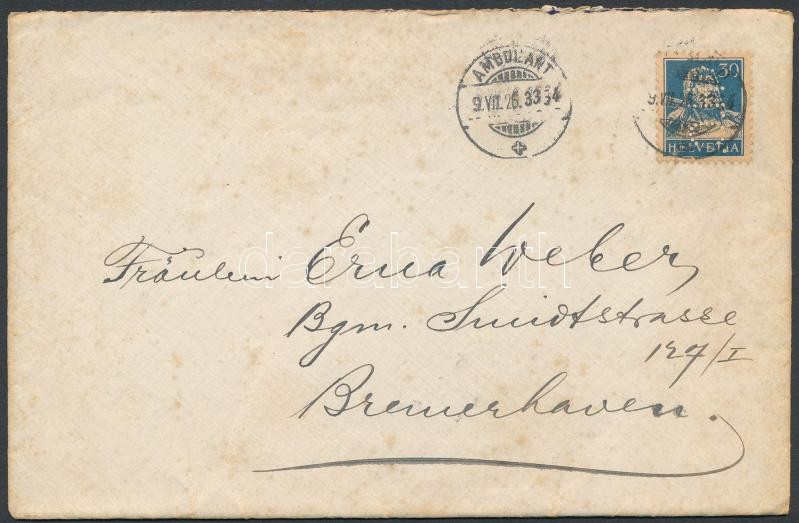 AMBULANT
9.VII.26.3334
30
HELVETIA
Fräulein Erna Weber,
Bgm. Smidtstrasse
127/I
Bremerhaven.
darabanth